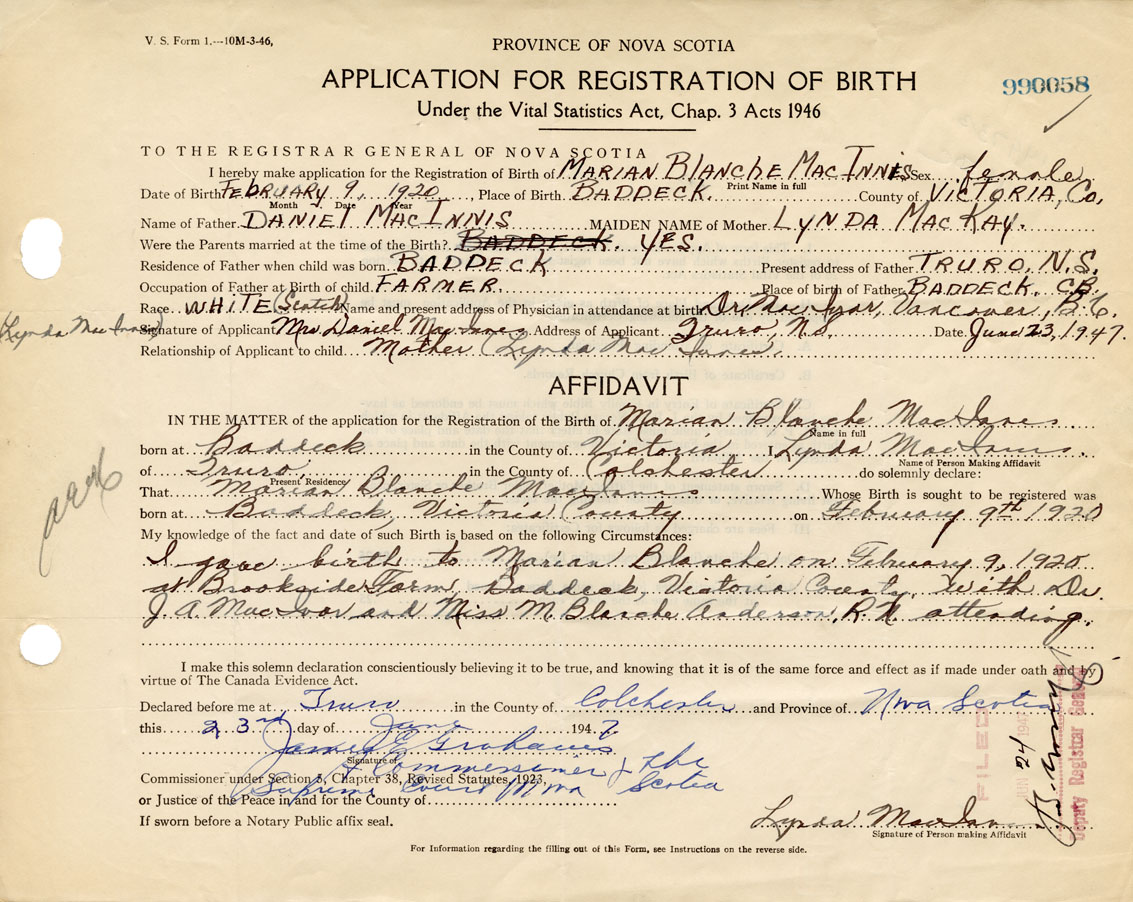 V. S. Form 1.--10M-3-46,
PROVINCE OF NOVA SCOTIA
APPLICATION FOR REGISTRATION OF BIRTH
990058
Under the Vital Statistics Act, Chap. 3 Acts 1946
TO THE REGISTRAR GENERAL OF NOVA SCOTIA
I hereby make application for the Registration of Birth of MARIAN BLANCHE MACINNIS Sex female
Print Name in full
Date of Birth FEBRUARY 9, 1920, Place of Birth BADDECK. County of VICTORIA, Co,
Month Date Year
Name of Father DANIEL MACINNIS MAIDEN NAME of Mother LYNDA MACKAY.
Were the Parents married at the time of the Birth? BADDECK. YES.
Residence of Father when child was born BADDECK Present address of Father TRURO, N.S.
Occupation of Father at Birth of child FARMER. Place of birth of Father BADDECK. C.B.
Race WHITE (Scotch) Name and present address of Physician in attendance at birth Dr MacIvor, Vancover, B.C.
(Lynda MacInnis) Signature of Applicant Mrs Daniel MacInnes Address of Applicant Truro, N.S. Date June 23, 1947.
Relationship of Applicant to child Mother (Lynda MacInnes)
AFFIDAVIT
IN THE MATTER of the application for the Registration of the Birth of Marian Blanche MacInnes
Name in full
born at Baddeck in the County of Victoria I Lynda MacInnis
Name of Person Making Affidavit
of Truro in the County of Colchester do solemnly declare:
Present Residence
That Marian Blanche MacInnis Whose Birth is sought to be registered was
born at Baddeck, Victoria County on February 9th 1920
My knowledge of the fact and date of such Birth is based on the following Circumstances:
I gave birth to Marian Blanche on February 9, 1920
at Brookside Farm, Baddeck, Victoria County, with Dr.
J. A. MacIvor and Miss M. Blanche Anderson, R.N. attending.
I make this solemn declaration conscientiously believing it to be true, and knowing that it is of the same force and effect as if made under oath and by
virtue of The Canada Evidence Act.
Declared before me at Truro in the County of Colchester and Province of Nova Scotia
this 23rd day of June 1947
James E Grahame
Signature of
A Commissioner of the
Commissioner under Section 5, Chapter 38, Revised Statutes, 1923,
Supreme Court Nova Scotia
or Justice of the Peace in and for the County of
If sworn before a Notary Public affix seal.
Lynda MacInnis
Signature of Person making Affidavit
FILED
JUN 24 1947
Deputy Registrar General
For Information regarding the filling out of this Form, see Instructions on the reverse side.